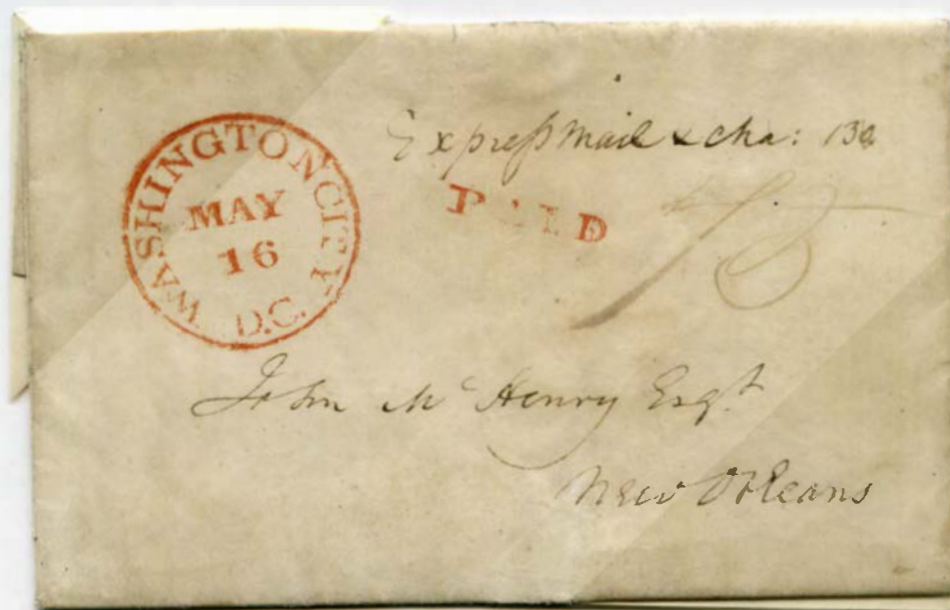 WASHINGTON CITY
MAY
16
D.C.
Expreſs mail & cha: 130
PAID
John Mc Henry Esqr
New Orleans